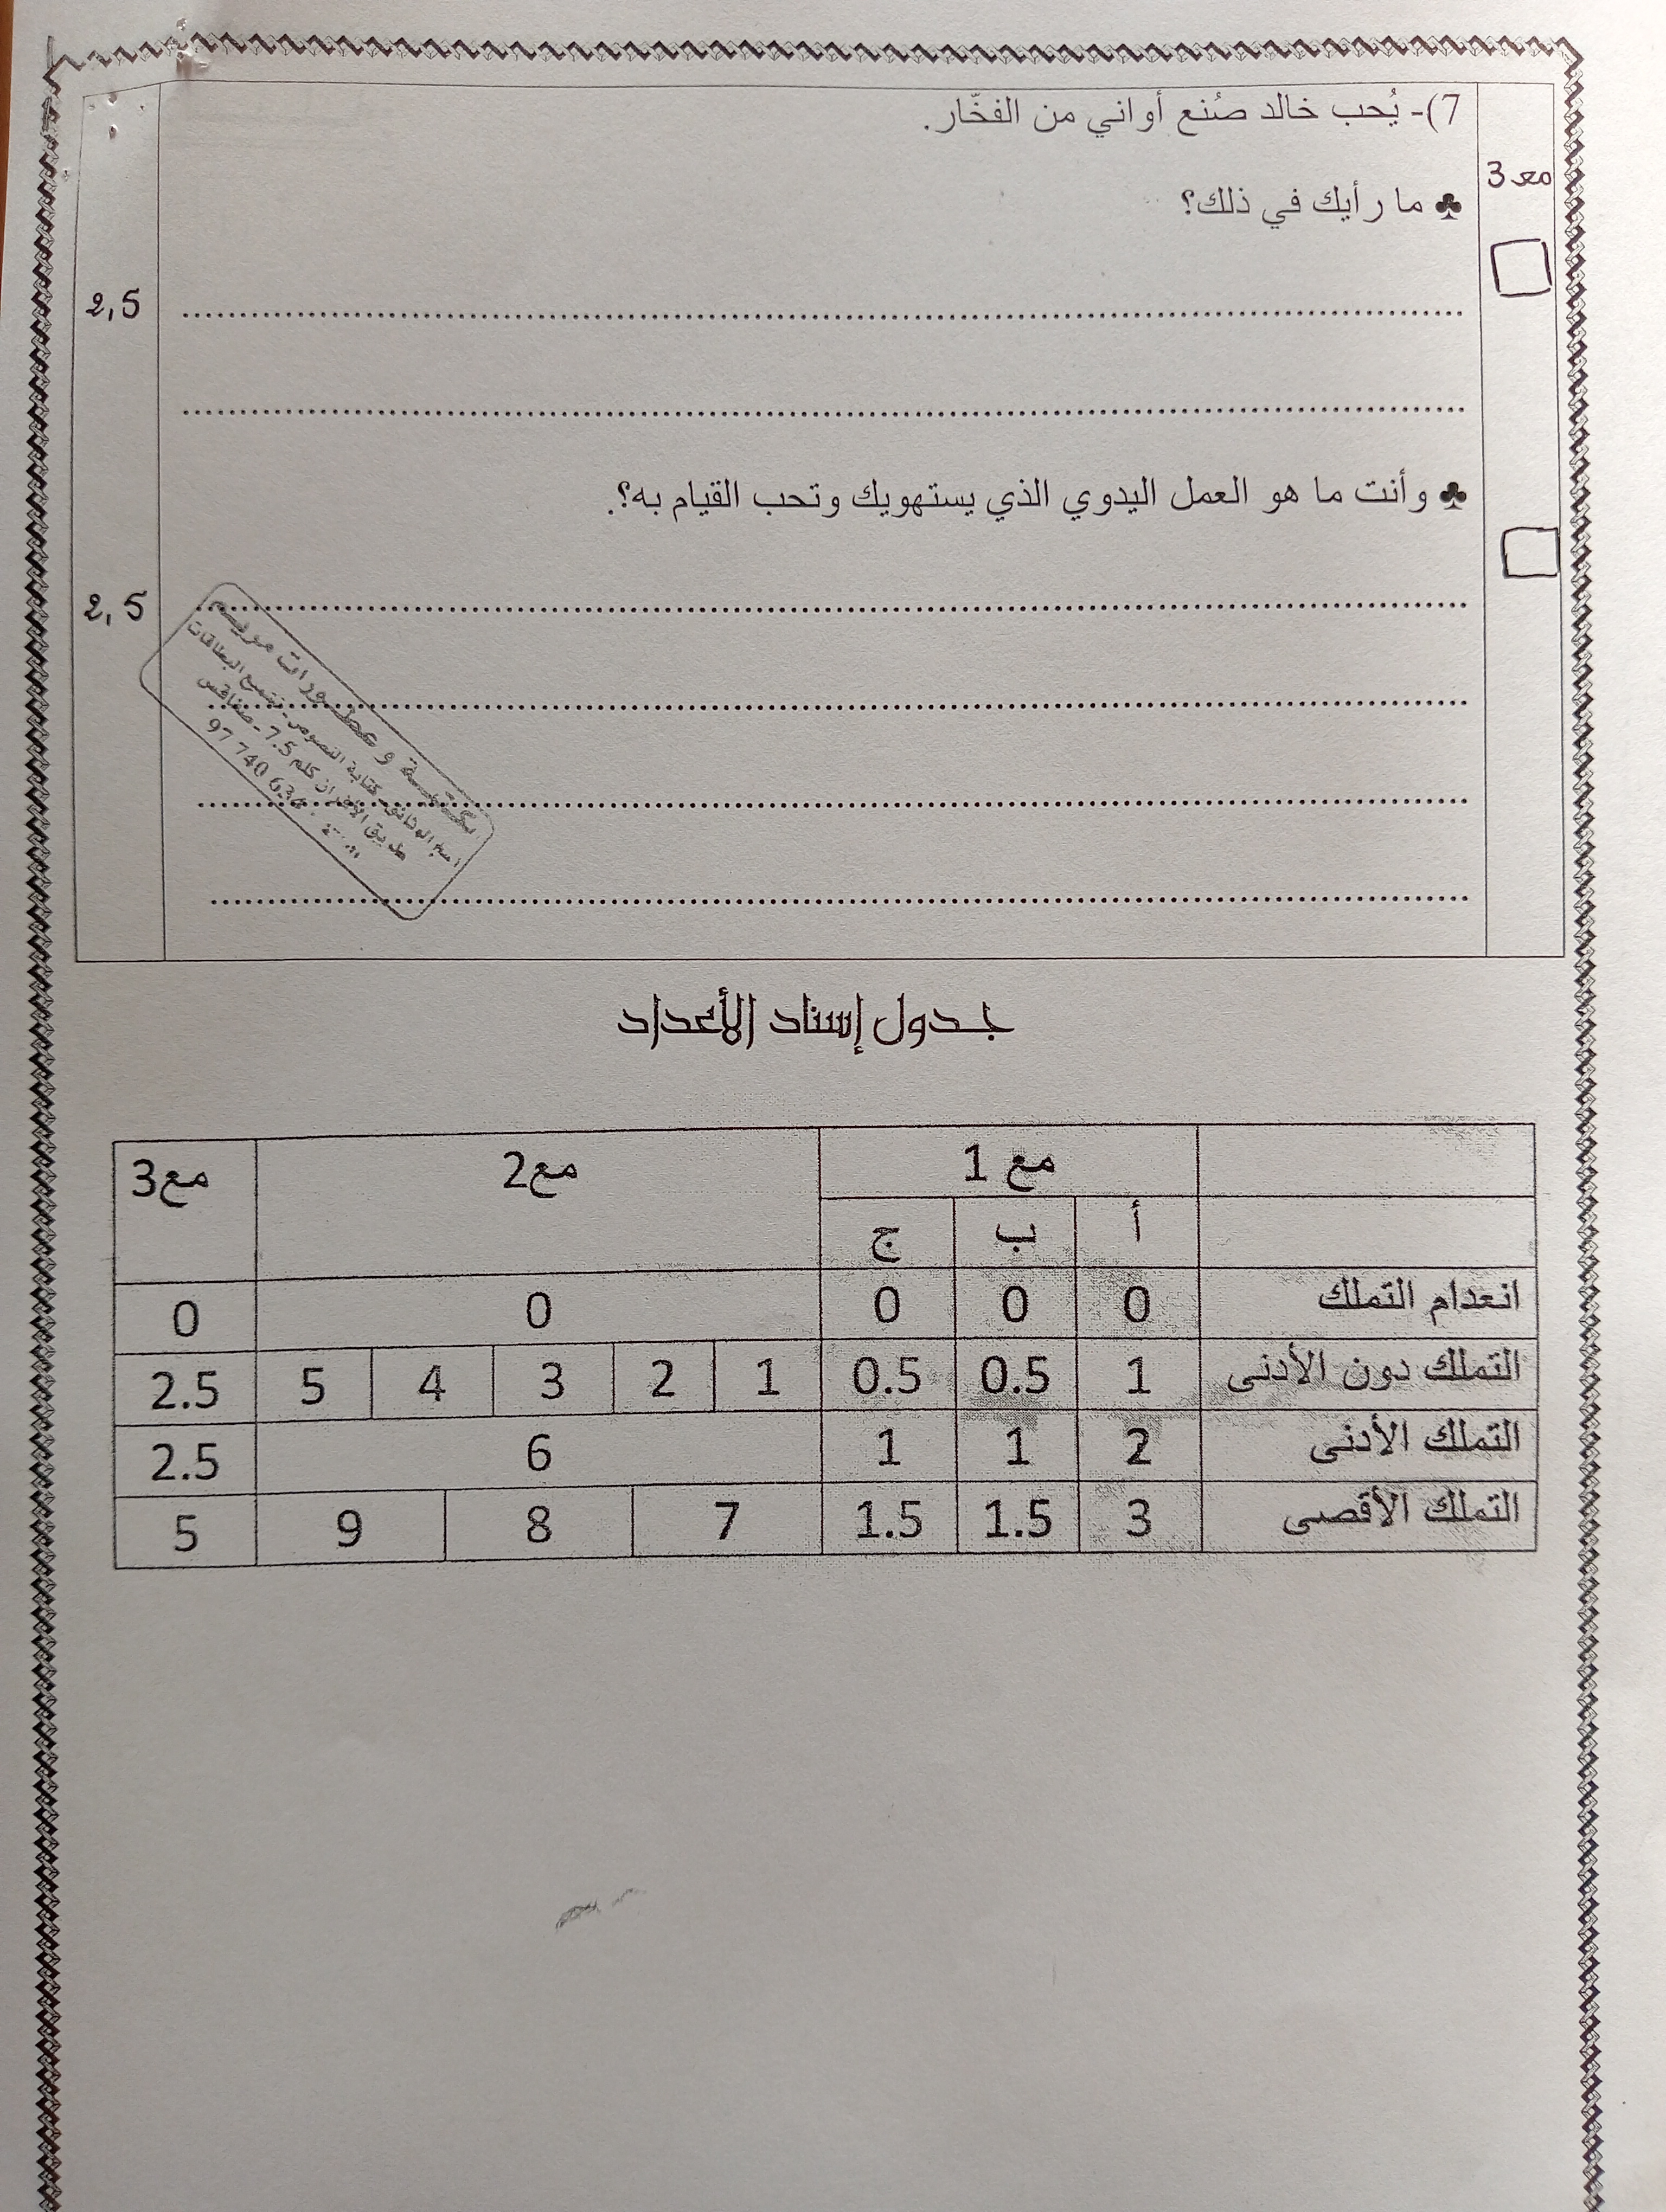 7)- يُحب خالد صُنع أواني من الفخّار.
مع 3
♣ ما رأيك في ذلك؟
2,5
♣ وأنت ما هو العمل اليدوي الذي يستهويك وتحب القيام به؟.
2,5
مكتبة وعطورات مريم
الوثائق كتابة النصوص
طريق الأفران كلم 7.5 - صفاقس
97 740
جدول إسناد الأعداد
مع 1 مع2 مع3
أ ب ج
انعدام التملك 0 0 0 0 0
التملك دون الأدنى 1 0.5 0.5 1 2 3 4 5 2.5
التملك الأدنى 2 1 1 6 2.5
التملك الأقصى 3 1.5 1.5 7 8 9 5